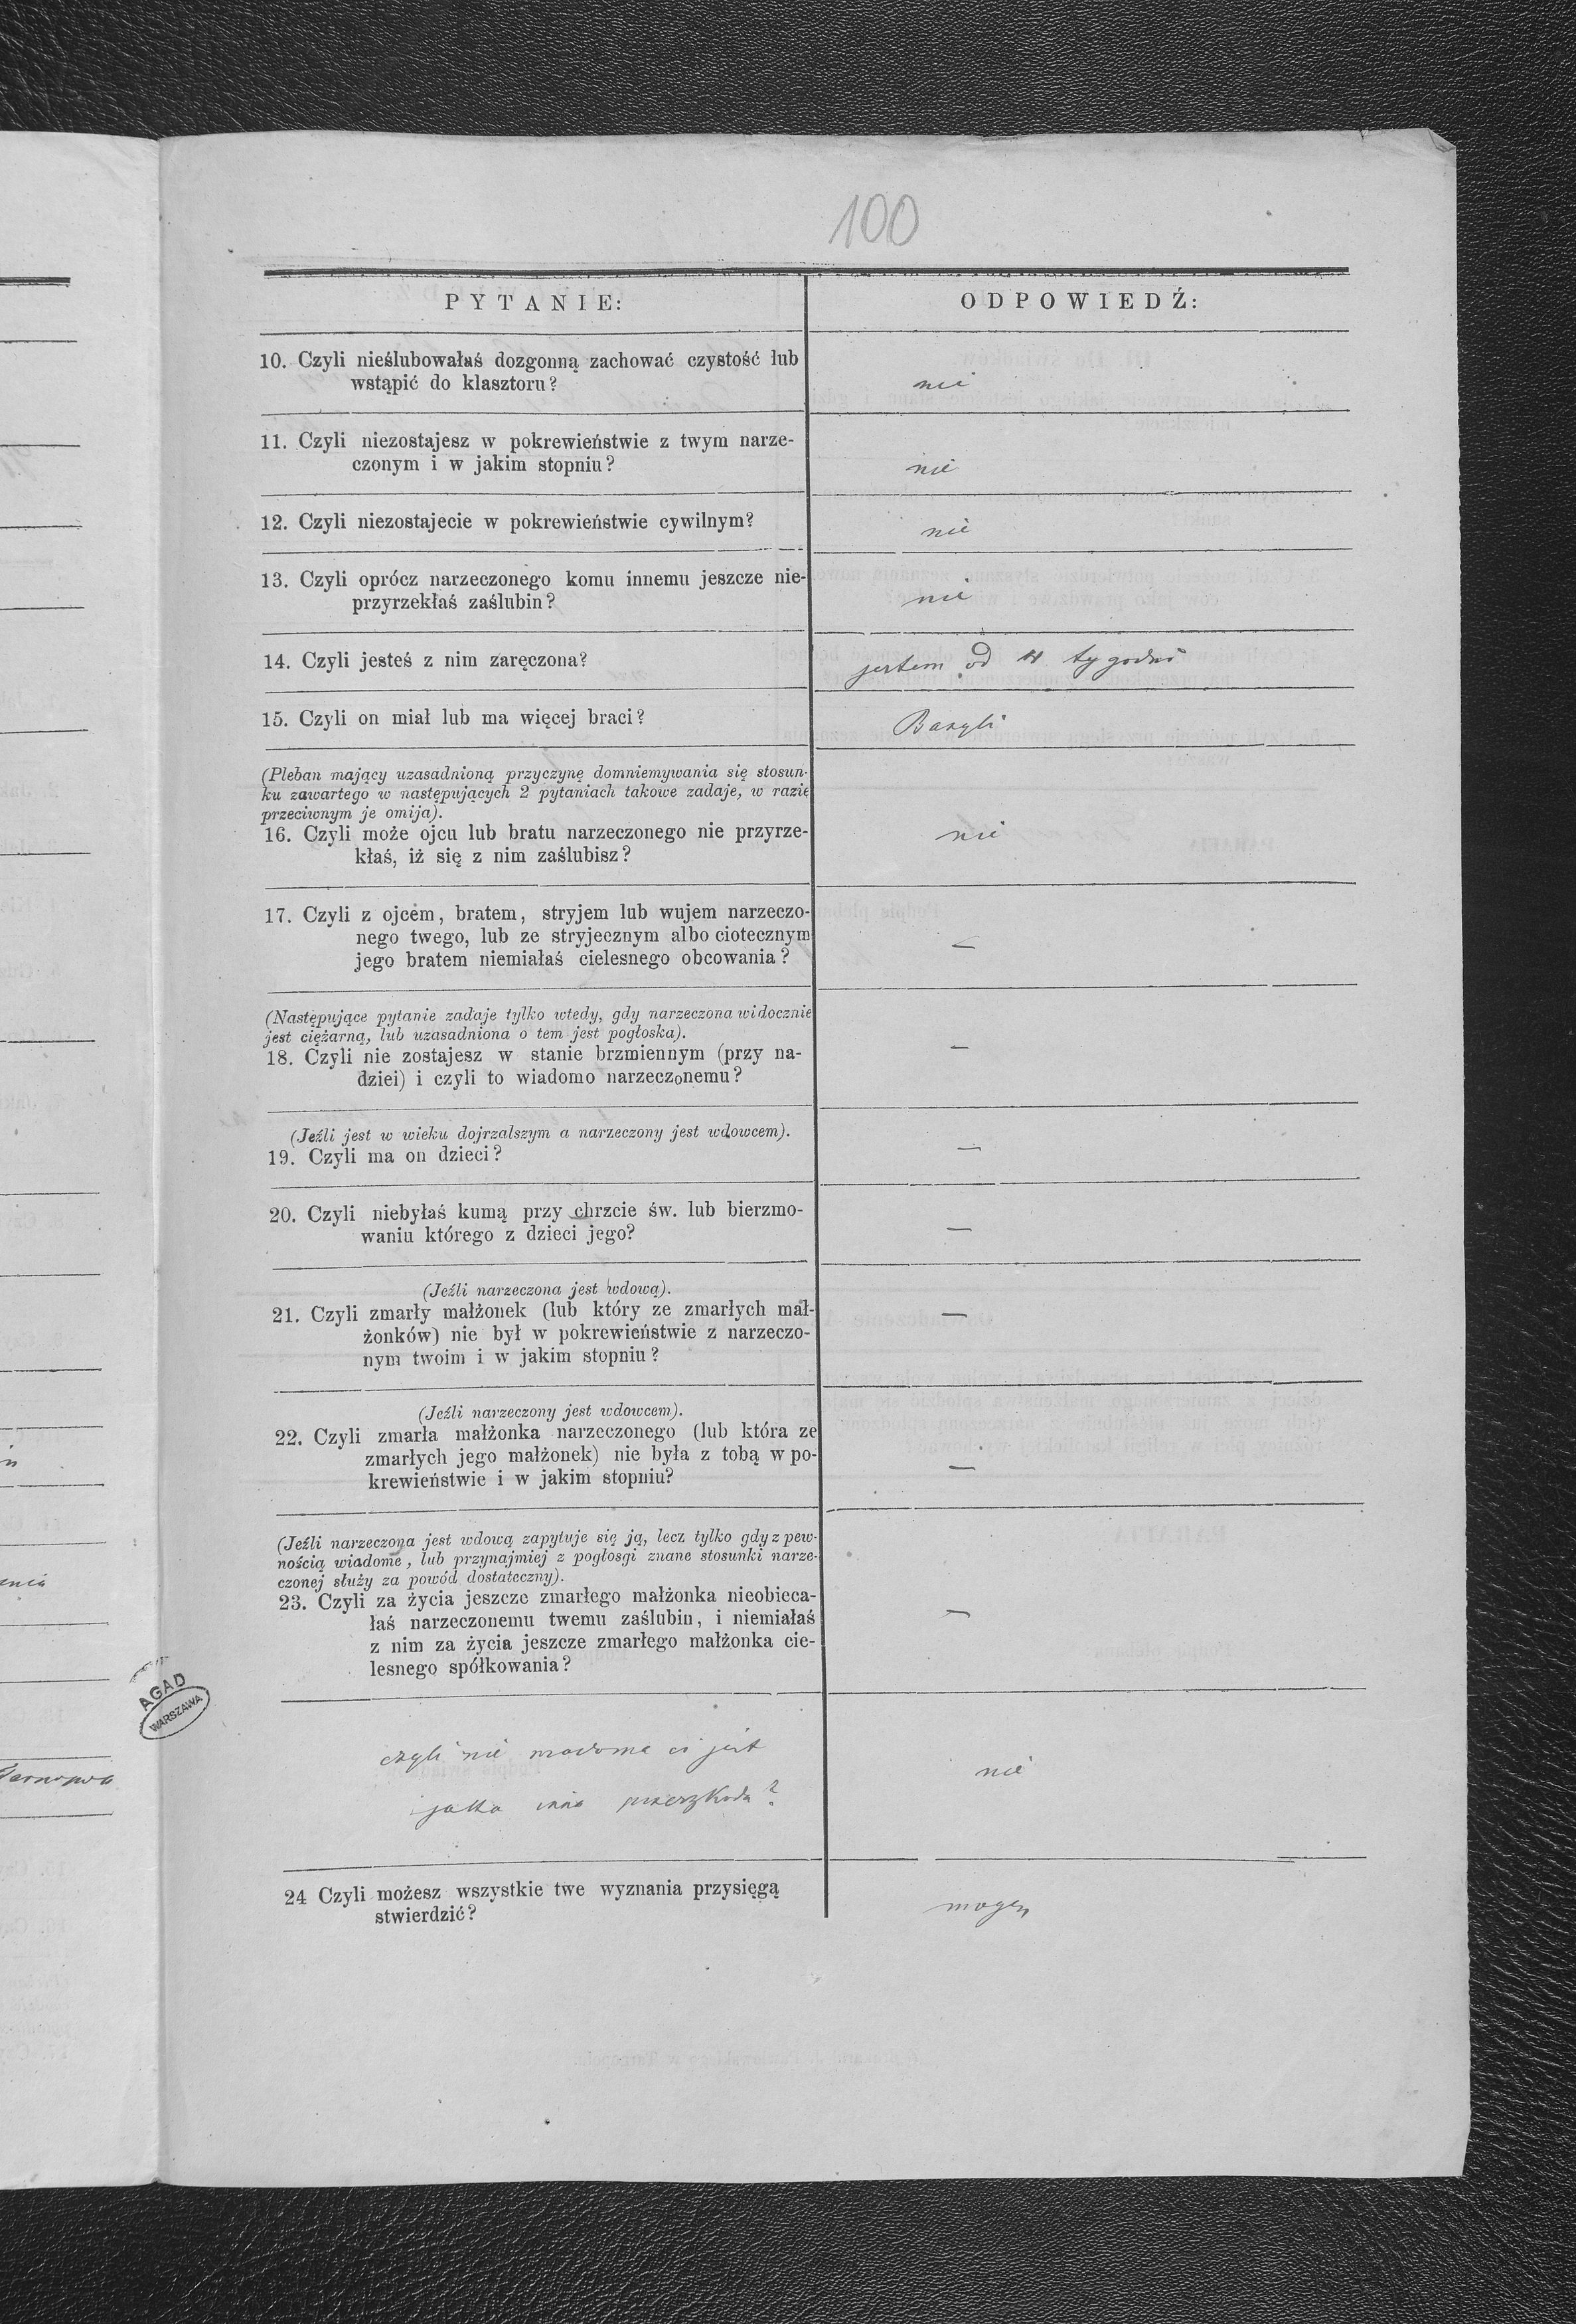 100
PYTANIE:
ODPOWIEDŹ:
10. Czyli nieślubowałaś dozgonną zachować czystość lub
wstąpić do klasztoru?
nie
11. Czyli niezostajesz w pokrewieństwie z twym narze-
czonym i w jakim stopniu?
nie
12. Czyli niezostajecie w pokrewieństwie cywilnym?
nie
13. Czyli oprócz narzeczonego komu innemu jeszcze nie-
przyrzekłaś zaślubin?
nie
14. Czyli jesteś z nim zaręczona?
jestem od 4 tygodni
15. Czyli on miał lub ma więcej braci?
Bazyli
(Pleban mający uzasadnioną przyczynę domniemywania się stosun-
ku zawartego w następujących 2 pytaniach takowe zadaje, w razie
przeciwnym je omija).
16. Czyli może ojcu lub bratu narzeczonego nie przyrze-
kłaś, iż się z nim zaślubisz?
nie
17. Czyli z ojcem, bratem, stryjem lub wujem narzeczo-
nego twego, lub ze stryjecznym albo ciotecznym
jego bratem niemiałaś cielesnego obcowania?
—
(Następujące pytanie zadaje tylko wtedy, gdy narzeczona widocznie
jest ciężarną, lub uzasadniona o tem jest pogłoska).
18. Czyli nie zostajesz w stanie brzmiennym (przy na-
dziei) i czyli to wiadomo narzeczonemu?
—
(Jeźli jest w wieku dojrzalszym a narzeczony jest wdowcem).
19. Czyli ma on dzieci?
—
20. Czyli niebyłaś kumą przy chrzcie św. lub bierzmo-
waniu którego z dzieci jego?
—
(Jeźli narzeczona jest wdową).
21. Czyli zmarły małżonek (lub który ze zmarłych mał-
żonków) nie był w pokrewieństwie z narzeczo-
nym twoim i w jakim stopniu?
—
(Jeźli narzeczony jest wdowcem).
22. Czyli zmarła małżonka narzeczonego (lub która ze
zmarłych jego małżonek) nie była z tobą w po-
krewieństwie i w jakim stopniu?
—
(Jeźli narzeczona jest wdową zapytuje się ją, lecz tylko gdy z pew-
nością wiadome, lub przynajmiej z pogłosgi znane stosunki narze-
czonej służy za powód dostateczny).
23. Czyli za życia jeszcze zmarłego małżonka nieobieca-
łaś narzeczonemu twemu zaślubin, i niemiałaś
z nim za życia jeszcze zmarłego małżonka cie-
lesnego spółkowania?
—
AGAD
WARSZAWA
czyli nie wiadoma ci jest
jaka inna przeszkoda?
nie
24 Czyli możesz wszystkie twe wyznania przysięgą
stwierdzić?
mogę